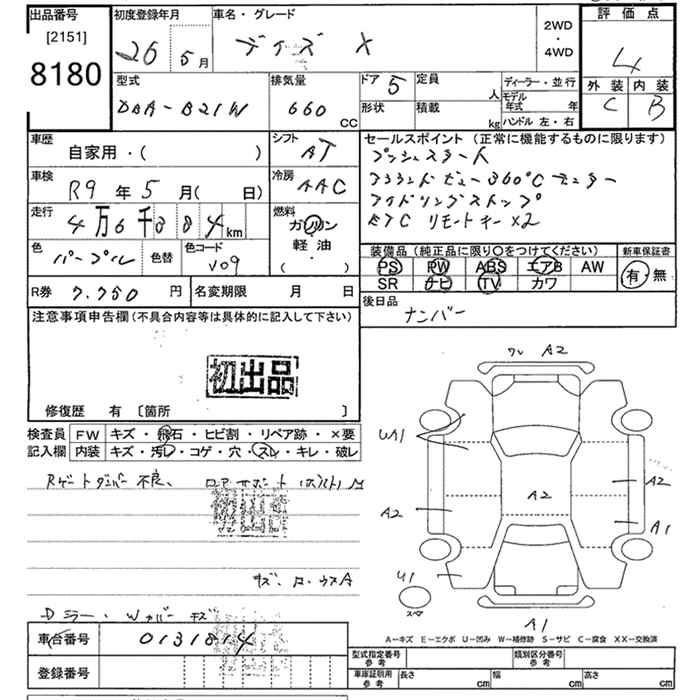 出品番号
[2151]
8180
初度登録年月
26 5月
車名・グレード
デイズ X
2WD
・
4WD
評価点
4
外装 内装
C B
型式
DBA-B21W
排気量
660 CC
ドア 5
定員 人
形状
積載 kg
ディーラー・並行
モデル年式 年
ハンドル 左・右
車歴
自家用・( )
シフト
AT
車検
R9年5月( 日)
冷房
AAC
走行
4万6千884km
燃料
ガソリン
軽油
( )
色 パープル
色替
色コード V09
セールスポイント (正常に機能するものに限ります)
プッシュスタート
アラウンドビュー360°Cモニター
アイドリングストップ
ETC リモートキー×2
装備品 (純正品に限り○をつけてください)
PS PW ABS エアB AW
SR ナビ TV カワ
新車保証書
有・無
R券 7.750円
名変期限 月 日
後日品
ナンバー
注意事項申告欄(不具合内容等は具体的に記入して下さい)
初出品
修復歴 有 〔箇所 〕
検査員 FW キズ・飛石・ヒビ割・リペア跡・×要
記入欄 内装 キズ・汚レ・コゲ・穴・スレ・キレ・破レ
Rゲートダンパー不良、
初出品
Dミラー・Wカバーキズ
車台番号 0131814
登録番号
ワレ A2
UA1
A2
A2
A2
A1
U1
スペア
A1
A−キズ E−エクボ U−凹み W−補修跡 S−サビ C−腐食 XX−交換済
型式指定番号 参考
類別区分番号 参考
車庫証明用 参考 長さ cm 幅 cm 高さ cm